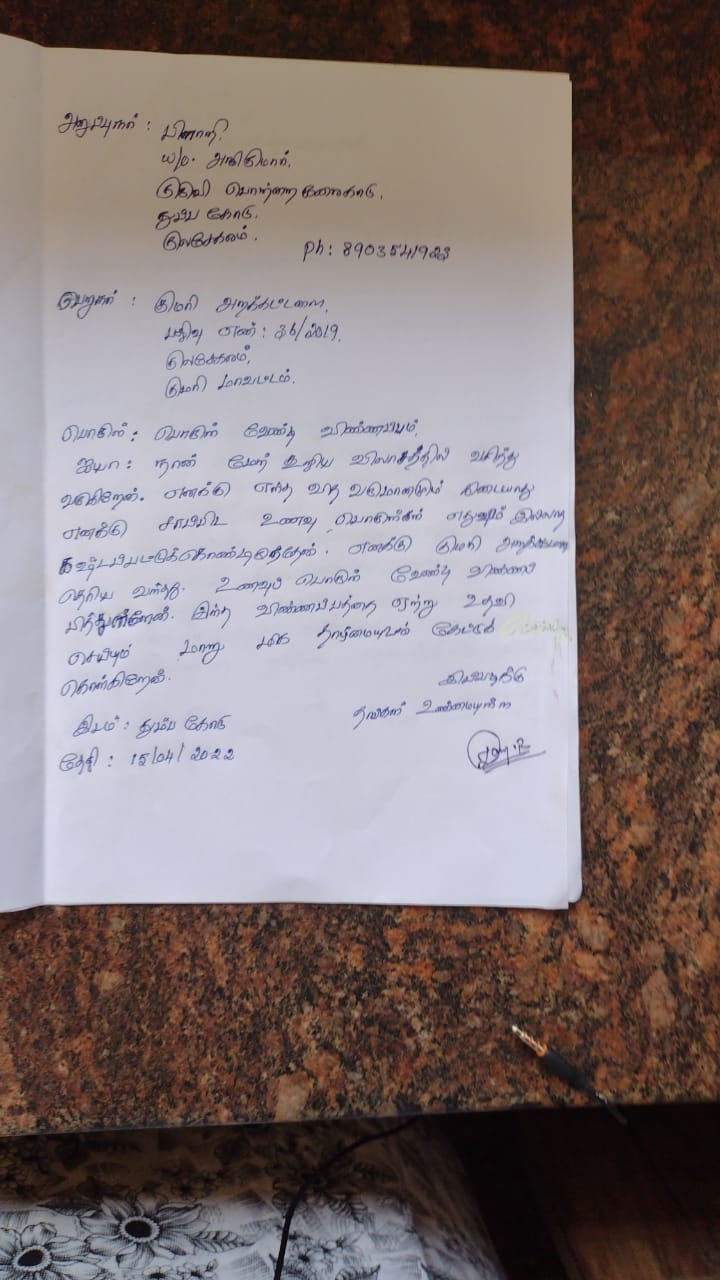 அனுப்புநர் :
W/o.
குலசேகரம்.
Ph: 8903541923
பெறுநர் : குமரி அறக்கட்டளை,
பதிவு எண் : 36/2019,
குலசேகரம்,
குமரி மாவட்டம்.
பொருள் : பொருள் வேண்டி விண்ணப்பம்.
ஐயா : நான் மேற் கூறிய விலாசத்தில் வசித்து
வருகிறேன். எனக்கு எந்த வித வருமானமும் கிடையாது
எனக்கு சாப்பிட உணவு பொருள்கள் எதுவும் இல்லாத
கஷ்டப்பட்டுக்கொண்டிருந்தேன். எனக்கு குமரி அறக்கட்டளை
தெரிய வந்தது. உணவுப் பொருள் வேண்டி விண்ணப்
பித்துள்ளேன். இந்த விண்ணப்பத்தை ஏற்று உதவி
செய்யும் மாறு மிக தாழ்மையுடன் கேட்டுக்
கொள்கிறேன்.
இப்படிக்கு
தங்கள் உண்மையுள்ள
இடம் : தும்ப கோடு
தேதி : 15/04/2022